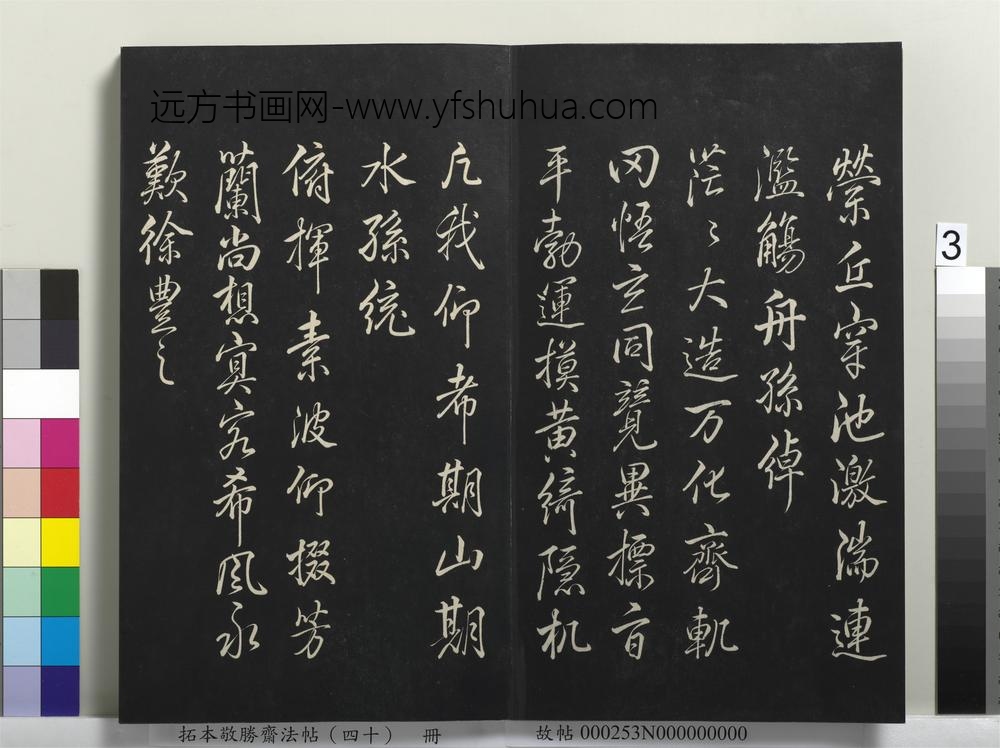 远方书画网-www.yfshuhua.com
縈丘穿池激湍連
濫觴舟孫綽
茫〻大造万化齊軌
罔悟玄同競異摽旨
平勃運摸黄綺隱机
凡我仰希期山期
水孫統
俯揮素波仰掇芳
蘭尚想冥客希風永
歎徐豐之
3
拓本敬勝齋法帖（四十） 冊
故帖 000253N000000000